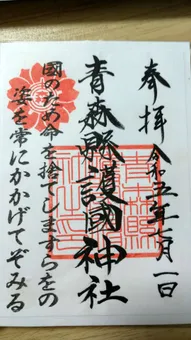 奉拝 令和五年一月一日
青森縣護國神社
國のため命を捨てしますらをの
姿を常にかかげてぞみる